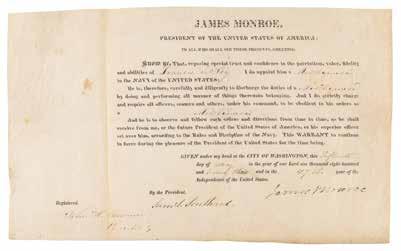 JAMES MONROE,
PRESIDENT OF THE UNITED STATES OF AMERICA:
TO ALL WHO SHALL SEE THESE PRESENTS, GREETING:
KNOW YE, That, reposing special trust and confidence in the patriotism, valor, fidelity
and abilities of I do appoint him a Midshipman
in the NAVY of the UNITED STATES:
He is, therefore, carefully and diligently to discharge the duties of a Midshipman
by doing and performing all manner of things thereunto belonging. And I do strictly charge
and require all officers, seamen and others, under his command, to be obedient to his orders as
a Midshipman
And he is to observe and follow such orders and directions from time to time, as he shall
receive from me, or the future President of the United States of America, or his superior officer
set over him, according to the Rules and Discipline of the Navy. This WARRANT to continue
in force during the pleasure of the President of the United States for the time being.
GIVEN under my hand at the CITY OF WASHINGTON, this
day of May in the year of our Lord one thousand eight hundred
and twenty three and in the 47th year of the
Independence of the United States.
James Monroe
By the President.
Saml L. Southard
Registered.